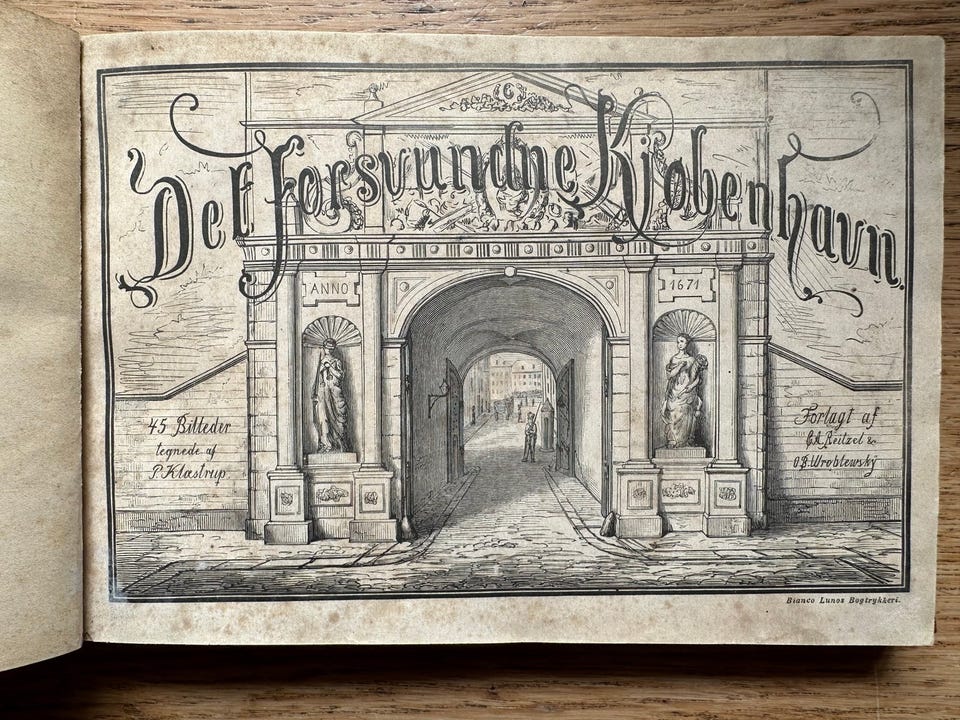 Det forsvundne Kjøbenhavn.
ANNO
1671
45 Billeder
tegnede af
P. Klæstrup.
Forlagt af
C.A. Reitzel &
O.B. Wroblewsky
Bianco Lunos Bogtrykkeri.